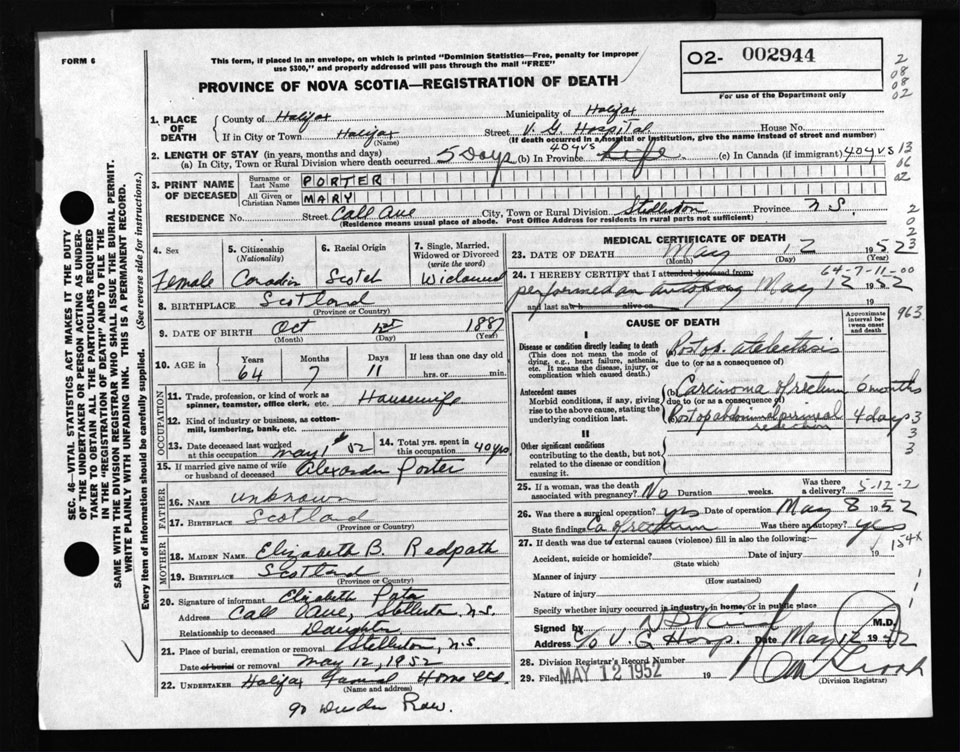 FORM 6
This form, if placed in an envelope, on which is printed "Dominion Statistics—Free, penalty for improper
use $300," and properly addressed will pass through the mail "FREE"
PROVINCE OF NOVA SCOTIA—REGISTRATION OF DEATH
02- 002944
For use of the Department only
2
08
08
02
1. PLACE OF DEATH
County of Halifax Municipality of Halifax
If in City or Town Halifax Street V. G. Hospital House No.
(Name) (If death occurred in a hospital or institution, give the name instead of street and number)
2. LENGTH OF STAY (in years, months and days) 40 yrs
(a) In City, Town or Rural Division where death occurred 5 Days (b) In Province Life (c) In Canada (if immigrant) 40 yrs
13
06
02
3. PRINT NAME OF DECEASED
Surname or Last Name PORTER
All Given or Christian Names MARY
RESIDENCE No. Street Call Ave City, Town or Rural Division Stellarton Province N.S.
(Residence means usual place of abode. Post Office Address for residents in rural parts not sufficient)
SEC. 46—VITAL STATISTICS ACT MAKES IT THE DUTY
OF THE UNDERTAKER OR PERSON ACTING AS UNDER-
TAKER TO OBTAIN ALL THE PARTICULARS REQUIRED
IN THE "REGISTRATION OF DEATH" AND TO FILE THE
SAME WITH THE DIVISION REGISTRAR WHO SHALL ISSUE THE BURIAL PERMIT.
WRITE PLAINLY WITH UNFADING INK. THIS IS A PERMANENT RECORD.
Every item of information should be carefully supplied. (See reverse side for instructions.)
4. Sex 5. Citizenship (Nationality) 6. Racial Origin 7. Single, Married, Widowed or Divorced (write the word)
Female Scotch Widowed
8. BIRTHPLACE Scotland
(Province or Country)
9. DATE OF BIRTH Oct 1st 1887
(Month) (Day) (Year)
10. AGE in Years Months Days If less than one day old
64 7 11 hrs. or min.
OCCUPATION
11. Trade, profession, or kind of work as
spinner, teamster, office clerk, etc. Housewife
12. Kind of industry or business, as cotton-
mill, lumbering, bank, etc.
13. Date deceased last worked
at this occupation May 1 52
14. Total yrs. spent in
this occupation 40 yrs
15. If married give name of wife
or husband of deceased Alexander Porter
FATHER
16. NAME unknown
17. BIRTHPLACE Scotland
(Province or Country)
MOTHER
18. MAIDEN NAME Elizabeth B. Redpath
19. BIRTHPLACE Scotland
(Province or Country)
20. Signature of informant Elizabeth
Address Call Ave, Stellarton, N.S.
Relationship to deceased Daughter
21. Place of burial, cremation or removal Stellarton, N.S.
Date of burial or removal May 12, 1952
22. UNDERTAKER Halifax Funeral Home Ltd.
(Name and address)
90 Row.
MEDICAL CERTIFICATE OF DEATH
23. DATE OF DEATH May 12 1952
(Month) (Day) (Year)
64-7-11-00
24. I HEREBY CERTIFY that I attended deceased from:
performed an autopsy May 12 1952
and last saw h alive on 19
963
CAUSE OF DEATH
Approximate interval between onset and death
I
Disease or condition directly leading to death
(This does not mean the mode of
dying, e.g., heart failure, asthenia,
etc. It means the disease, injury, or
complication which caused death.)
(a) Post op. atelectasis
due to (or as a consequence of)
Antecedent causes
Morbid conditions, if any, giving
rise to the above cause, stating the
underlying condition last.
(b) Carcinoma of rectum 6 months
due to (or as a consequence of)
Post op abdominal perineal resection 4 days
II
Other significant conditions
contributing to the death, but not
related to the disease or condition
causing it.
3
3
3
2
25. If a woman, was the death
associated with pregnancy? No Duration weeks. Was there a delivery?
5-12-2
26. Was there a surgical operation? yes Date of operation May 8 1952
State findings Ca of rectum Was there an autopsy? yes
27. If death was due to external causes (violence) fill in also the following:—
Accident, suicide or homicide? Date of injury 19
(State which)
154x
Manner of injury
(How sustained)
Nature of injury
Specify whether injury occurred in industry, in home, or in public place
Signed by M.D.
Address c/o V. G. Hosp. Date May 12 1952
28. Division Registrar's Record Number
29. Filed MAY 12 1952 19
(Division Registrar)